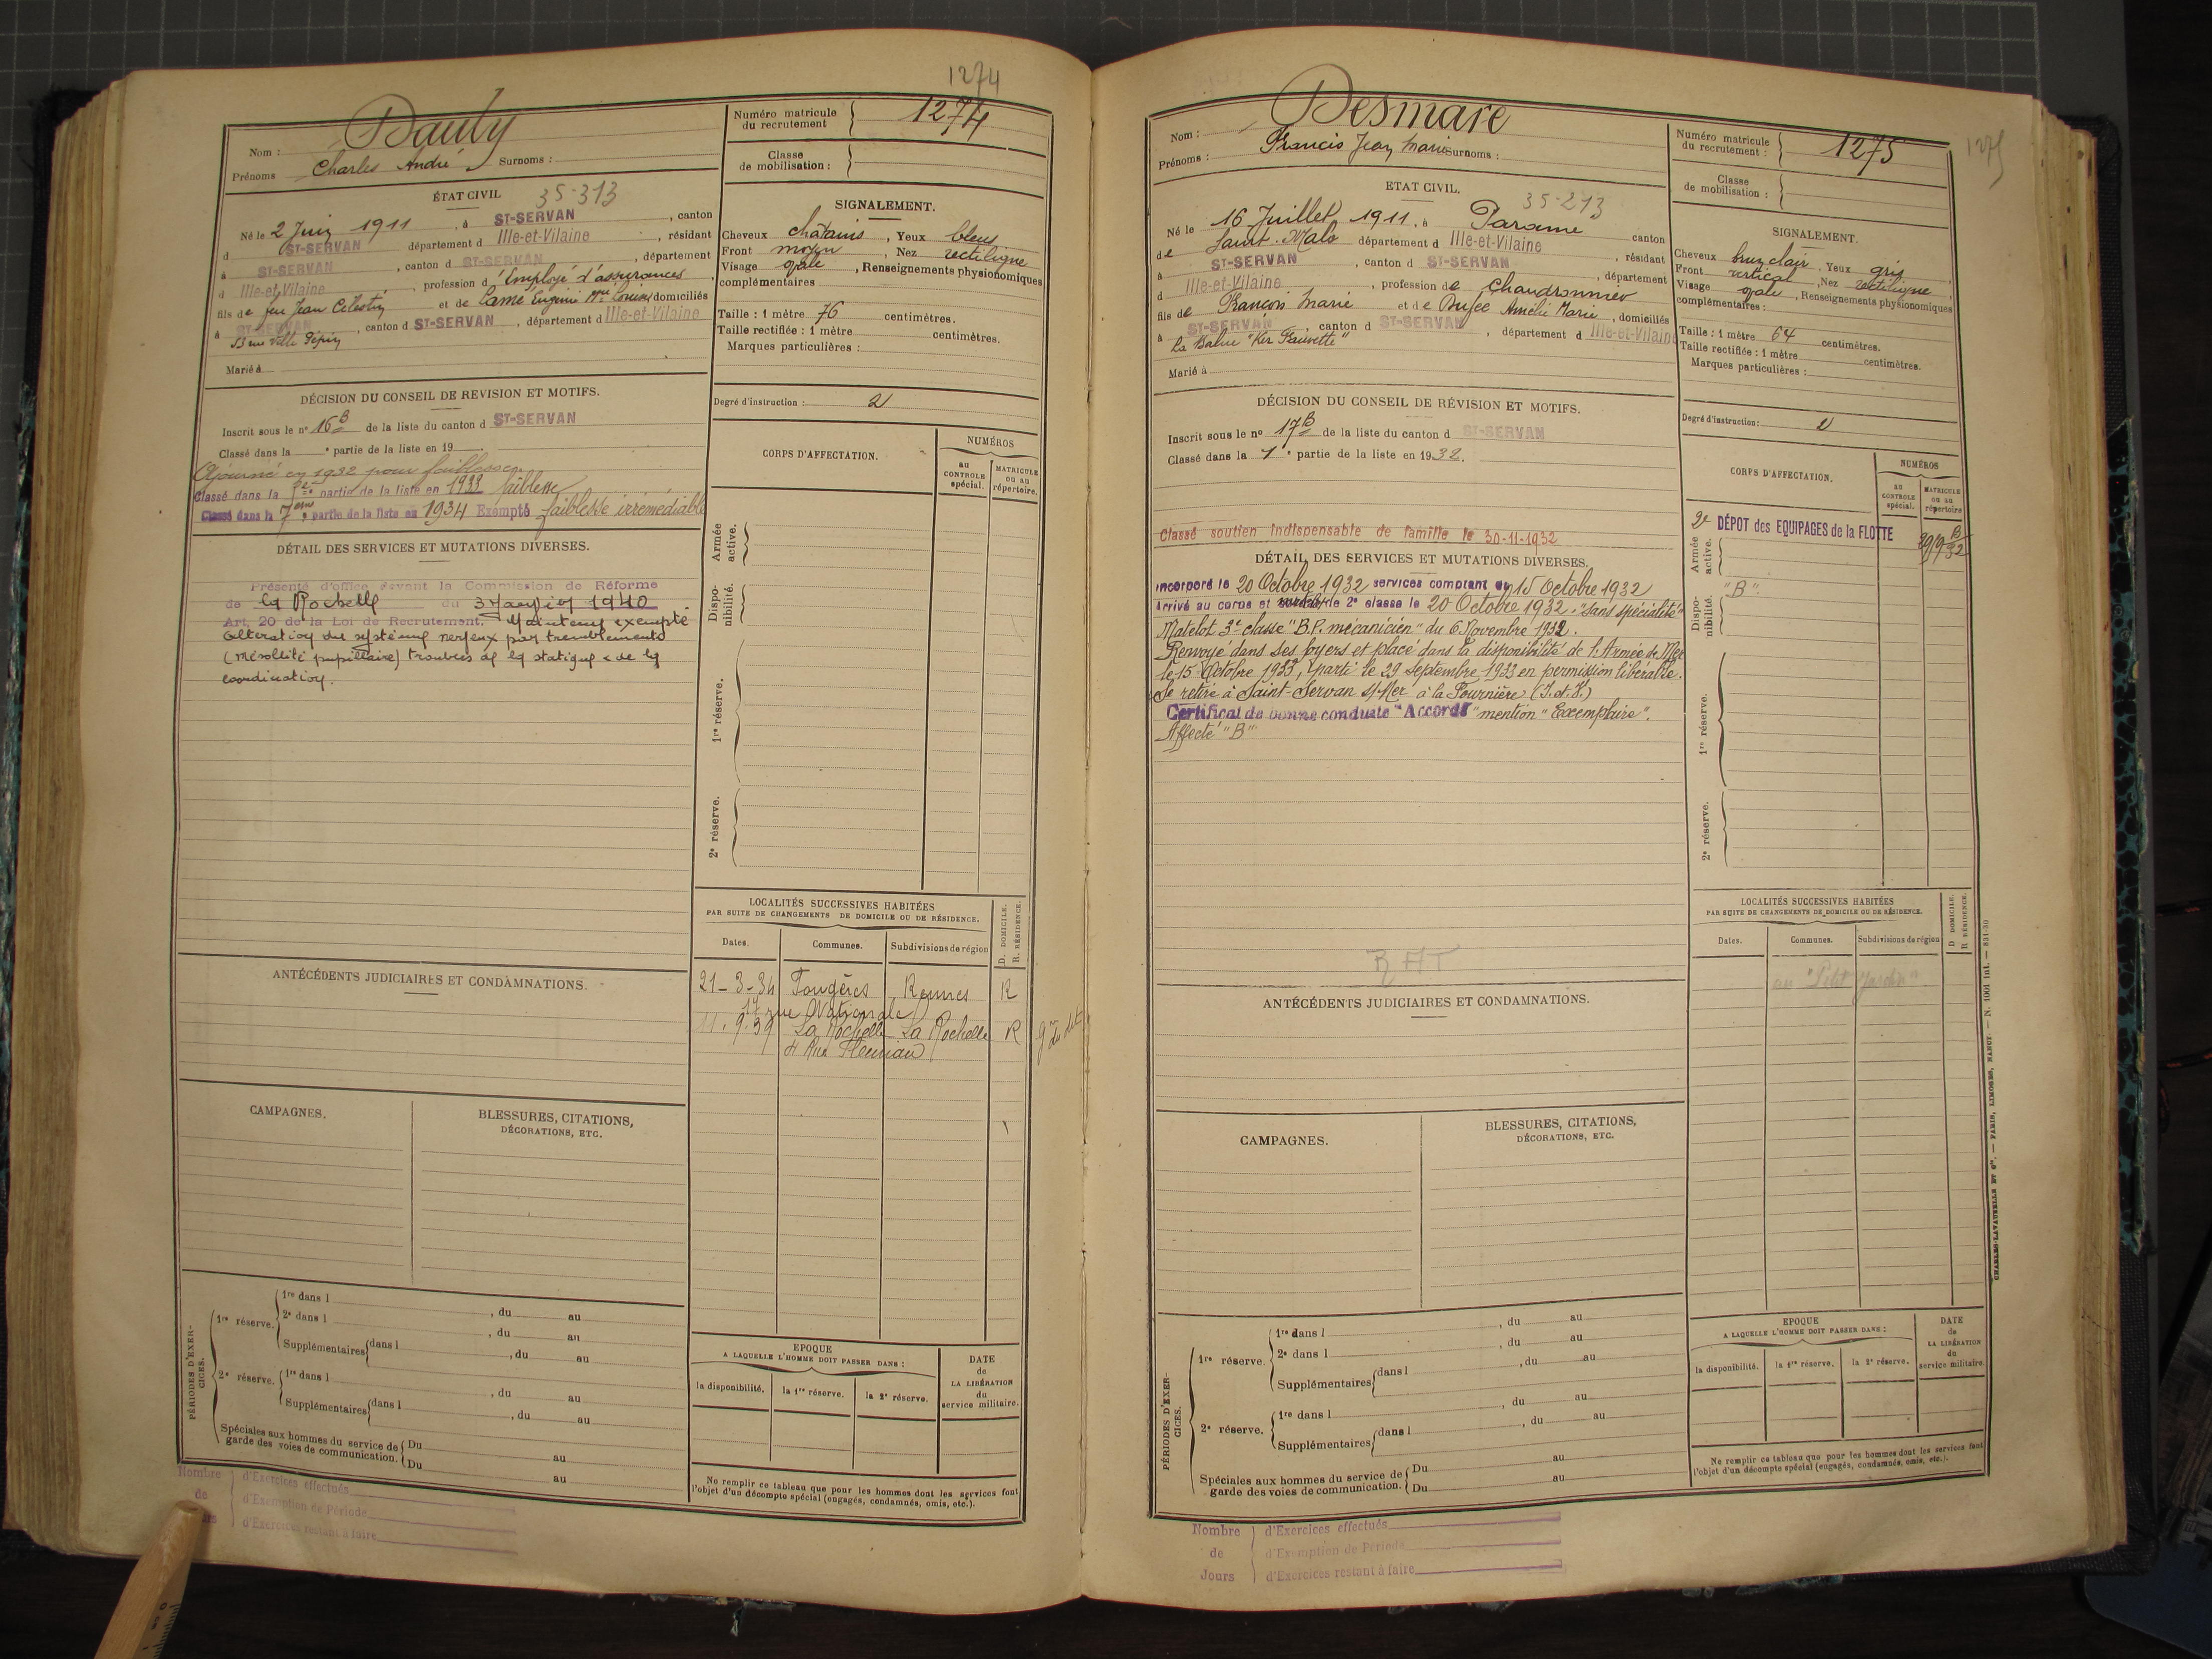 1274
Nom : Dauly
Prénoms Charles André Surnoms :
Numéro matricule du recrutement 1274
Classe de mobilisation :
ÉTAT CIVIL 35-313
Né le 2 Juin 1911, à ST-SERVAN, canton
d ST-SERVAN département d Ille-et-Vilaine, résidant
à ST-SERVAN, canton d ST-SERVAN, département
d Ille-et-Vilaine, profession d'Employé d'assurances,
fils de feu Jean Célestin et de Lamé Eugénie Louise domiciliés
à ST-SERVAN, canton d ST-SERVAN, département d Ille-et-Vilaine
rue Ville Pépin
Marié à
SIGNALEMENT.
Cheveux châtains, Yeux bleus
Front moyen, Nez rectiligne
Visage ovale, Renseignements physionomiques
complémentaires :
Taille : 1 mètre 76 centimètres.
Taille rectifiée : 1 mètre centimètres.
Marques particulières :
Degré d'instruction : 2
DÉCISION DU CONSEIL DE REVISION ET MOTIFS.
Inscrit sous le n° 16 B de la liste du canton d ST-SERVAN
Classé dans la e partie de la liste en 19
Ajourné en 1932 pour faiblesse
Classé dans la partie de la liste en 1933 faiblesse
Classé dans la 7eme partie de la liste en 1934 Exempté faiblesse irrémédiable
DÉTAIL DES SERVICES ET MUTATIONS DIVERSES.
Présenté d'office devant la Commission de Réforme
de La Rochelle du 3 Janvier 1940
Art. 20 de la Loi de Recrutement. Maintenu exempté
altération du système nerveux par tremblements
pupillaire) troubles de la statique & de la
coordination.
CORPS D'AFFECTATION.
NUMÉROS
AU CONTROLE spécial.
MATRICULE ou au répertoire.
Armée active.
Disponibilité.
1re réserve.
2e réserve.
LOCALITÉS SUCCESSIVES HABITÉES
PAR SUITE DE CHANGEMENTS DE DOMICILE OU DE RÉSIDENCE.
D. DOMICILE.
R. RÉSIDENCE.
Dates. Communes. Subdivisions de région
21-3-34 Fougères Rennes R
17 rue Nationale
11.9.39 La Rochelle La Rochelle R
4 Rue Fleuriau
ANTÉCÉDENTS JUDICIAIRES ET CONDAMNATIONS.
CAMPAGNES.
BLESSURES, CITATIONS,
DÉCORATIONS, ETC.
PÉRIODES D'EXERCICES.
1re réserve. 1re dans l, du au
2e dans l, du au
Supplémentaires dans l, du au
2e réserve. 1re dans l, du au
Supplémentaires dans l, du au
Spéciales aux hommes du service de garde des voies de communication. Du au
Du au
EPOQUE
A LAQUELLE L'HOMME DOIT PASSER DANS :
la disponibilité. la 1re réserve. la 2e réserve.
DATE de LA LIBÉRATION du service militaire.
Ne remplir ce tableau que pour les hommes dont les services font
l'objet d'un décompte spécial (engagés, condamnés, omis, etc.).
Nombre de Jours
d'Exercices effectués
d'Exemption de Période
d'Exercices restant à faire
1275
Nom : Desmare
Prénoms : Francis Jean Marie Surnoms :
Numéro matricule du recrutement : 1275
Classe de mobilisation :
ETAT CIVIL. 35-213
Né le 16 Juillet 1911, à Paramé canton
de Saint-Malo département d Ille-et-Vilaine, résidant
à ST-SERVAN, canton d ST-SERVAN, département
d Ille-et-Vilaine, profession de Chaudronnier
fils de François Marie et de Amélie Marie, domiciliés
à ST-SERVAN, canton d ST-SERVAN, département d Ille-et-Vilaine
La Balue "Ker Fauvette"
Marié à
SIGNALEMENT.
Cheveux brun clair, Yeux gris
Front vertical, Nez rectiligne
Visage ovale, Renseignements physionomiques
complémentaires :
Taille : 1 mètre 64 centimètres.
Taille rectifiée : 1 mètre centimètres.
Marques particulières :
Degré d'instruction : 2
DÉCISION DU CONSEIL DE RÉVISION ET MOTIFS.
Inscrit sous le n° 17 B de la liste du canton d ST-SERVAN
Classé dans la 1e partie de la liste en 1932.
Classé soutien indispensable de famille le 30-11-1932
DÉTAIL DES SERVICES ET MUTATIONS DIVERSES.
Incorporé le 20 Octobre 1932 services comptant du 15 Octobre 1932
Arrivé au corps et de 2e classe le 20 Octobre 1932. "Sans spécialité"
Matelot 3e classe "B.P. mécanicien" du 6 Novembre 1932.
Renvoyé dans ses foyers et placé dans la disponibilité de l'Armée de Mer
le 15 Octobre 1933, parti le 29 Septembre 1933 en permission libérable.
Se retire à Saint-Servan s/Mer à la Fournière (I.et V.)
Certificat de bonne conduite "Accordé" mention "Exemplaire".
Affecté "B"
RAT
CORPS D'AFFECTATION.
NUMÉROS
AU CONTROLE spécial.
MATRICULE ou au répertoire
2e DÉPOT des EQUIPAGES de la FLOTTE
"B".
Armée active.
Disponibilité.
1re réserve.
2e réserve.
LOCALITÉS SUCCESSIVES HABITÉES
PAR SUITE DE CHANGEMENTS DE DOMICILE OU DE RÉSIDENCE.
D DOMICILE.
R RÉSIDENCE.
Dates. Communes. Subdivisions de région
au "Petit Jardin"
ANTÉCÉDENTS JUDICIAIRES ET CONDAMNATIONS.
CAMPAGNES.
BLESSURES, CITATIONS,
DÉCORATIONS, ETC.
PÉRIODES D'EXERCICES.
1re réserve. 1re dans l, du au
2e dans l, du au
Supplémentaires dans l, du au
2e réserve. 1re dans l, du au
Supplémentaires dans l, du au
Spéciales aux hommes du service de garde des voies de communication. Du au
Du au
EPOQUE
A LAQUELLE L'HOMME DOIT PASSER DANS :
la disponibilité. la 1re réserve. la 2e réserve.
DATE de LA LIBÉRATION du service militaire.
Ne remplir ce tableau que pour les hommes dont les services font
l'objet d'un décompte spécial (engagés, condamnés, omis, etc.).
Nombre de Jours
d'Exercices effectués
d'Exemption de Période
d'Exercices restant à faire
CHARLES-LAVAUZELLE ET Cie. — PARIS, LIMOGES, NANCY. — N. 1001 int. — 831-30